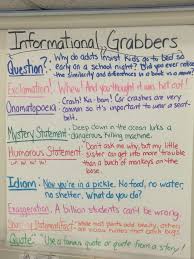 Informational Grabbers
Question?: Why do adults insist kids go to bed so
early on a school night? Did you ever notice
the similarity and differences in a book vs a movie?
Exclamation!: Whew! And you thought it was hot out!
Onomatopoeia: Crash! Ka-bam! Car crashes are very
common so it's important to wear a seat-
belt.
Mystery Statement - Deep down in the ocean lurks a
dangerous killing machine.
Humorous Statement: Don't ask me why, but my little
sister can get into more trouble
than a bunch of monkeys on the
base.
Idiom: Now you're in a pickle. No food, no water,
no shelter. What do you do?
Exaggeration: A billion students can't be wrong.
Sharing Statement/Fact - While most plants add beauty, others
are vicious that catch bugs
Quote: Use a famous quote or quote from a story!